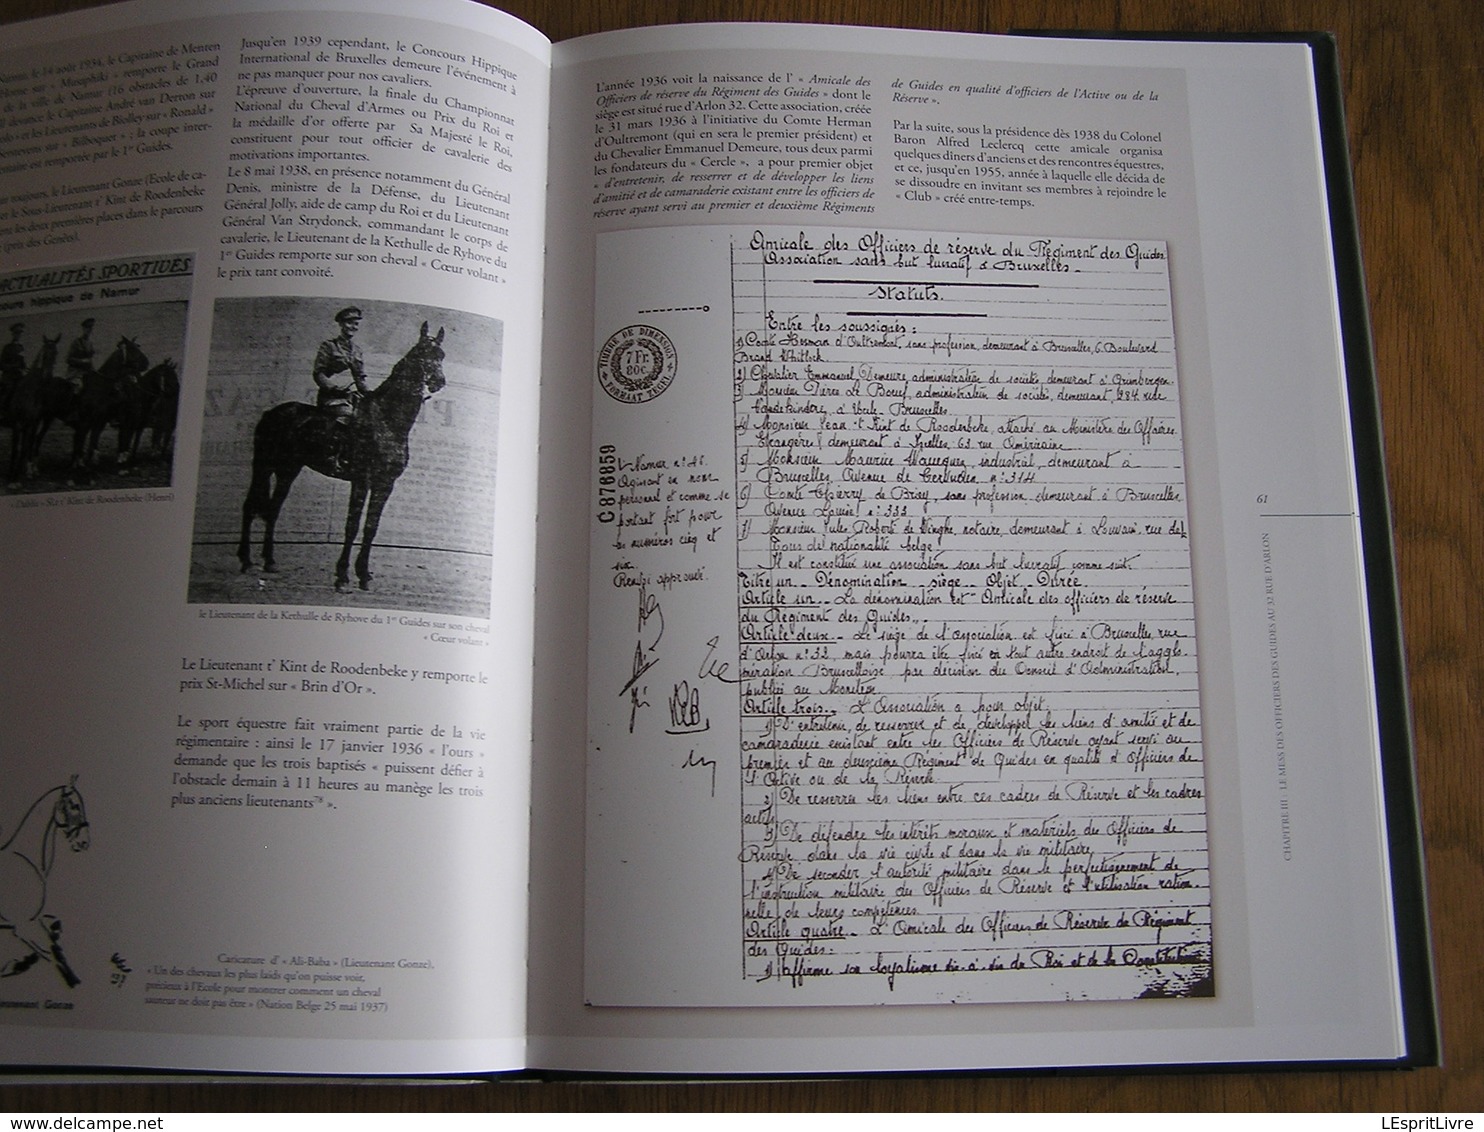 Namur le 14 août 1934, le Capitaine de Menten
Horne sur « Musaphiki » remporte le Grand
de la ville de Namur (16 obstacles de 1,40
devance le Capitaine André van Derton sur
et les Lieutenants de Biolley sur « Ronald »
sur « Bilboquet » ; la coupe inter-
est remportée par le 1er Guides.
toujours, le Lieutenant Gonze (Ecole de ca-
et le Sous-Lieutenant t' Kint de Roodenbeke
les deux premières places dans le parcours
(prix des Genêts).
ACTUALITÉS SPORTIVES
hippique de Namur
Slt t' Kint de Roodenbeke (Henri)
Jusqu'en 1939 cependant, le Concours Hippique
International de Bruxelles demeure l'événement à
ne pas manquer pour nos cavaliers.
L'épreuve d'ouverture, la finale du Championnat
National du Cheval d'Armes ou Prix du Roi et
la médaille d'or offerte par Sa Majesté le Roi,
constituent pour tout officier de cavalerie des
motivations importantes.
Le 8 mai 1938, en présence notamment du Général
Denis, ministre de la Défense, du Lieutenant
Général Jolly, aide de camp du Roi et du Lieutenant
Général Van Strydonck, commandant le corps de
cavalerie, le Lieutenant de la Kethulle de Ryhove du
1er Guides remporte sur son cheval « Cœur volant »
le prix tant convoité.
le Lieutenant de la Kethulle de Ryhove du 1er Guides sur son cheval
« Cœur volant »
Le Lieutenant t' Kint de Roodenbeke y remporte le
prix St-Michel sur « Brin d'Or ».
Le sport équestre fait vraiment partie de la vie
régimentaire : ainsi le 17 janvier 1936 « l'ours »
demande que les trois baptisés « puissent défier à
l'obstacle demain à 11 heures au manège les trois
plus anciens lieutenants78 ».
Caricature d' « Ali-Baba » (Lieutenant Gonze).
« Un des chevaux les plus laids qu'on puisse voir,
précieux à l'Ecole pour montrer comment un cheval
sauteur ne doit pas être » (Nation Belge 25 mai 1937)
Lieutenant Gonze
L'année 1936 voit la naissance de l' « Amicale des
Officiers de réserve du Régiment des Guides » dont le
siège est situé rue d'Arlon 32. Cette association, créée
le 31 mars 1936 à l'initiative du Comte Herman
d'Oultremont (qui en sera le premier président) et
du Chevalier Emmanuel Demeure, tous deux parmi
les fondateurs du « Cercle », a pour premier objet
« d'entretenir, de resserrer et de développer les liens
d'amitié et de camaraderie existant entre les officiers de
réserve ayant servi au premier et deuxième Régiments
de Guides en qualité d'officiers de l'Active ou de la
Réserve ».
Par la suite, sous la présidence dès 1938 du Colonel
Baron Alfred Leclercq cette amicale organisa
quelques dîners d'anciens et des rencontres équestres,
et ce, jusqu'en 1955, année à laquelle elle décida de
se dissoudre en invitant ses membres à rejoindre le
« Club » créé entre-temps.
Amicale des Officiers de réserve du Régiment des Guides
Association sans but lucratif à Bruxelles.
Statuts.
Entre les soussignés :
1) Comte Herman d'Oultremont, sans profession, demeurant à Bruxelles, 6, Boulevard
Brand Whitlock.
2) Chevalier Emmanuel Demeure, administrateur de sociétés, demeurant à Grimbergen.
3) Monsieur Pierre Le Bœuf, administrateur de sociétés, demeurant, 284 rue
à Uccle-Bruxelles.
4) Monsieur Jean 't Kint de Roodenbeke, attaché au Ministère des Affaires
Etrangères, demeurant à Ixelles 63 rue Américaine.
5) Monsieur Maurice Wauquez, industriel, demeurant à
Bruxelles, Avenue de Tervueren n° 314
6) Comte Thierry de Briey, sans profession, demeurant à Bruxelles,
Avenue Louise n° 333
7) Monsieur Jules Roberti de Winghe, notaire, demeurant à Louvain, rue de
Tous de nationalité belge.
Il est constitué une association sans but lucratif comme suit:
Titre un - Dénomination - siège - Objet - Durée.
Article un - La dénomination est "Amicale des officiers de réserve
du Régiment des Guides".
Article deux.- Le siège de l'association est fixé à Bruxelles, rue
d'Arlon n° 32, mais pourra être fixé en tout autre endroit de l'agglo-
mération Bruxelloise, par décision du Conseil d'Administration,
publiée au Moniteur
Article trois.- L'Association a pour objet.
1) D'entretenir, de resserrer et de développer les liens d'amitié et de
camaraderie existant entre les Officiers de Réserve ayant servi au
premier et au deuxième Régiment de Guides en qualité d'Officiers de
l'Active ou de la Réserve.
2) De resserrer les liens entre ces cadres de Réserve et les cadres
actifs
3) De défendre les intérêts moraux et matériels des Officiers de
Réserve, dans la vie civile et dans la vie militaire.
4) De seconder l'autorité militaire dans le perfectionnement de
l'instruction militaire des Officiers de Réserve et l'utilisation ration-
nelle de leurs compétences.
Article quatre.- L'Amicale des Officiers de Réserve du Régiment
des Guides:
1) affirme son loyalisme vis-à-vis du Roi et de la Constitution
TIMBRE DE DIMENSION
7 Fr.
80c.
FORMAAT ZEGEL
C 876859
Namur n° 45.
Agissant en nom
personnel et comme se
portant fort pour
les numéros cinq et
six.
Renvoi approuvé.
61
CHAPITRE III - LE MESS DES OFFICIERS DES GUIDES AU 32 RUE D'ARLON
LEspritLivre